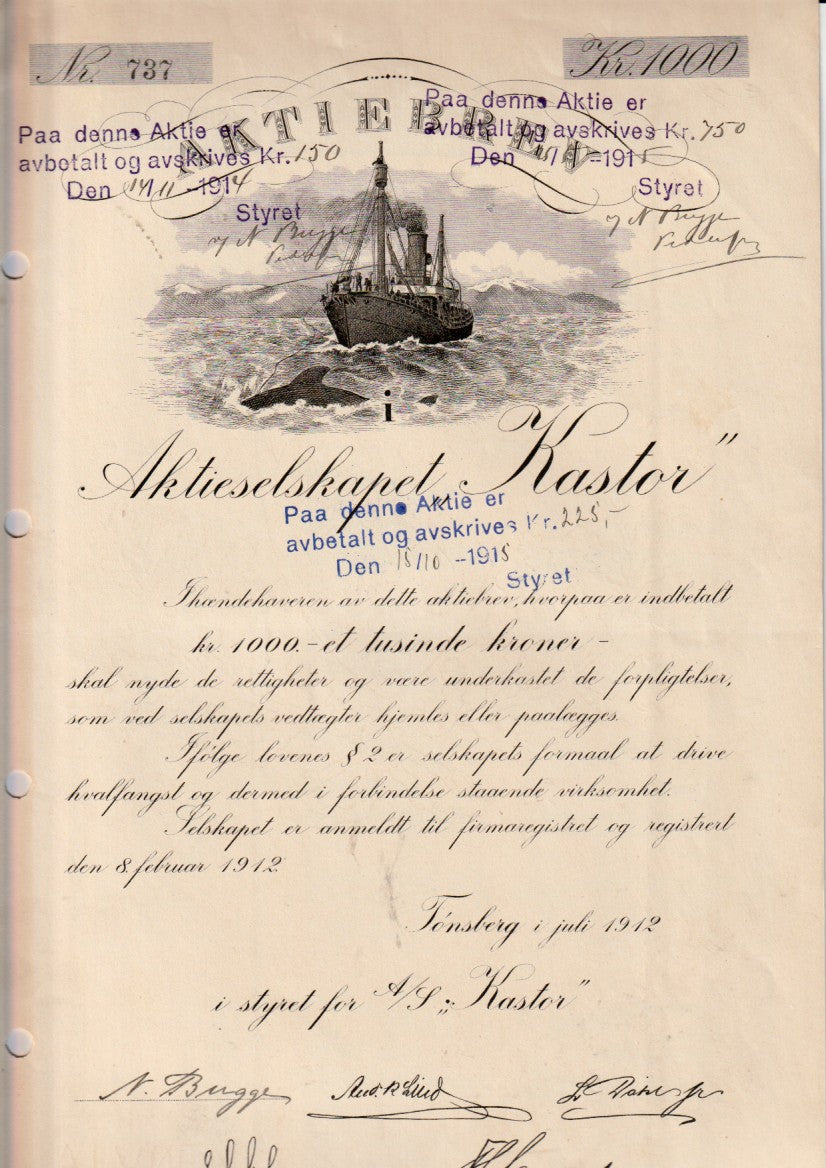 Nr. 737
Kr. 1000
AKTIEBREV
Paa denne Aktie er
avbetalt og avskrives Kr. 150
Den 14/11 -1914
Styret
N. Bugge
Paa denne Aktie er
avbetalt og avskrives Kr. 750
Den -1915
Styret
N. Bugge
i
Aktieselskapet „Kastor"
Paa denne Aktie er
avbetalt og avskrives Kr. 225,-
Den 15/10 -1915
Styret
Ihændehaveren av dette aktiebrev, hvorpaa er indbetalt
kr. 1000.- et tusinde kroner -
skal nyde de rettigheter og være underkastet de forpligtelser,
som ved selskapets vedtægter hjemles eller paalægges.
Ifølge lovenes § 2 er selskapets formaal at drive
hvalfangst og dermed i forbindelse staaende virksomhet.
Selskapet er anmeldt til firmaregistret og registrert
den 8. februar 1912.
Tønsberg i juli 1912
i styret for A/S „Kastor"
N. Bugge